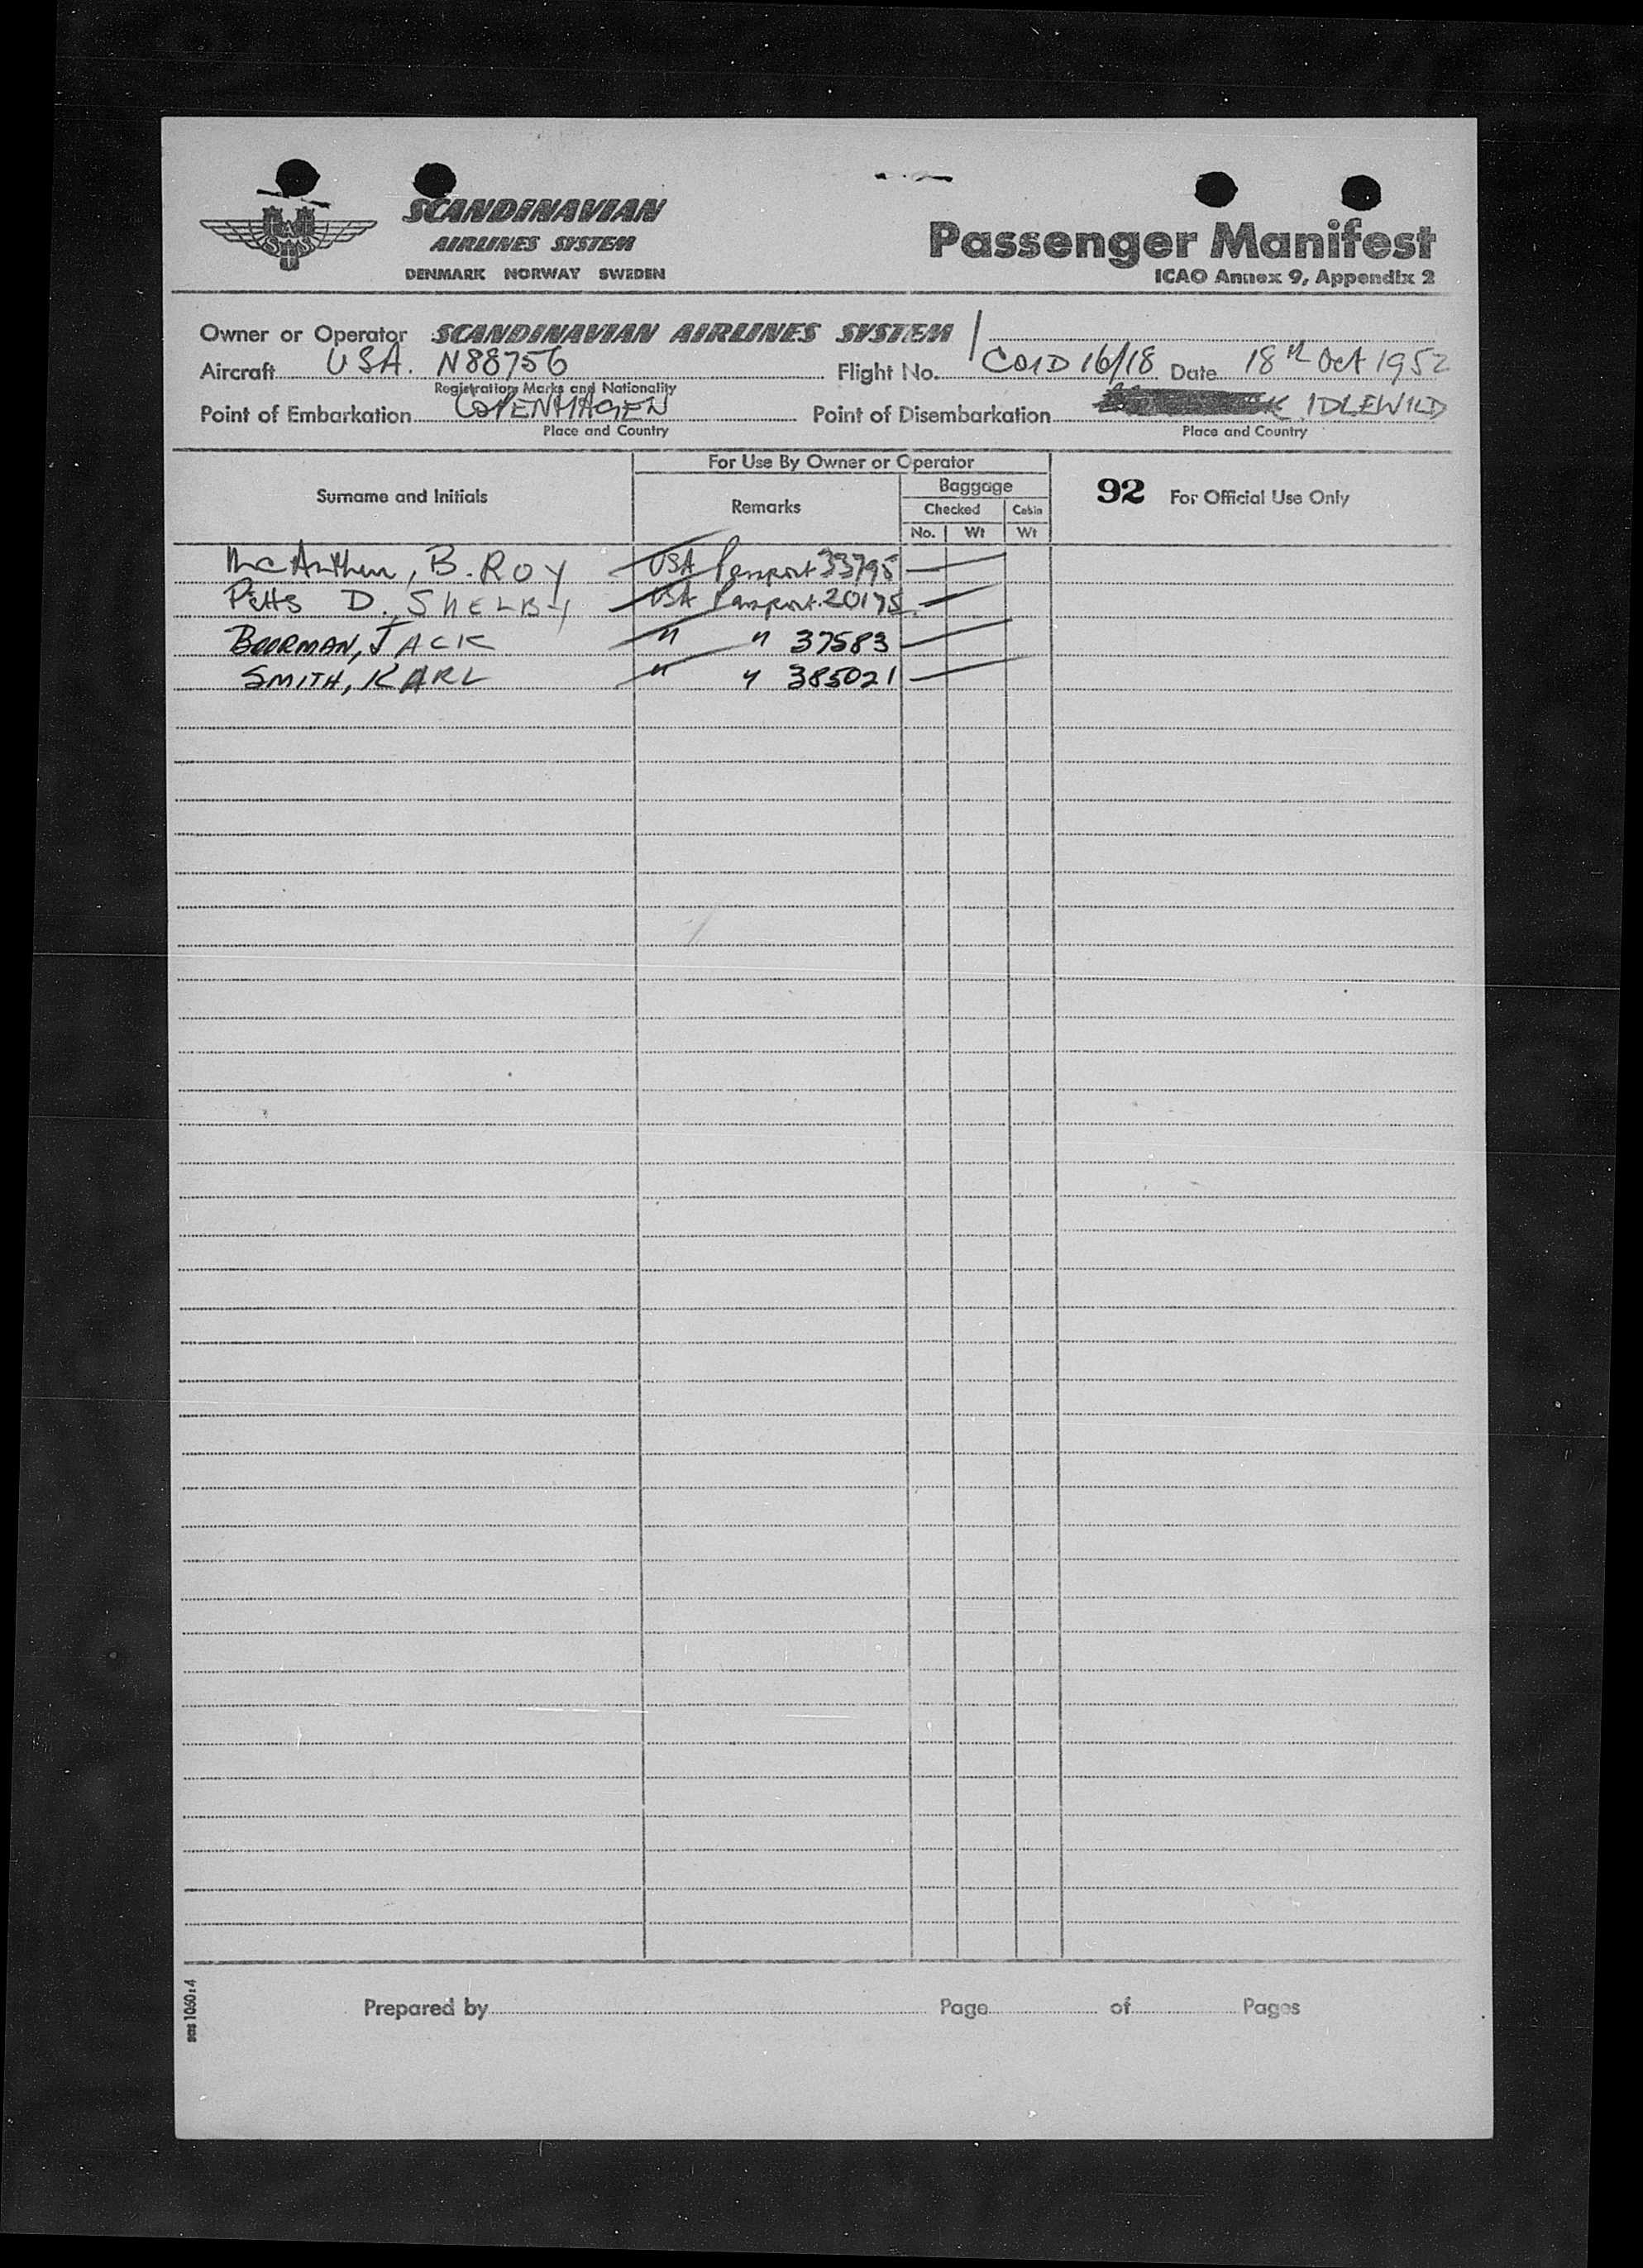 SCANDINAVIAN
AIRLINES SYSTEM
DENMARK NORWAY SWEDEN
SAS
Passenger Manifest
ICAO Annex 9, Appendix 2
Owner or Operator SCANDINAVIAN AIRLINES SYSTEM
Aircraft USA. N88756 Flight No. COID 16/18 Date 18th Oct 1952
Registration Marks and Nationality
Point of Embarkation COPENHAGEN Point of Disembarkation IDLEWILD
Place and Country Place and Country
For Use By Owner or Operator
Surname and Initials Remarks Baggage 92 For Official Use Only
Checked Cabin
No. Wt Wt
McArthur, B. ROY USA Passport 33795
Pitts D. SHELBY USA Passport 20175
BOORMAN, JACK " " 37583
SMITH, KARL " " 385021
Prepared by Page of Pages
sas 1060:4